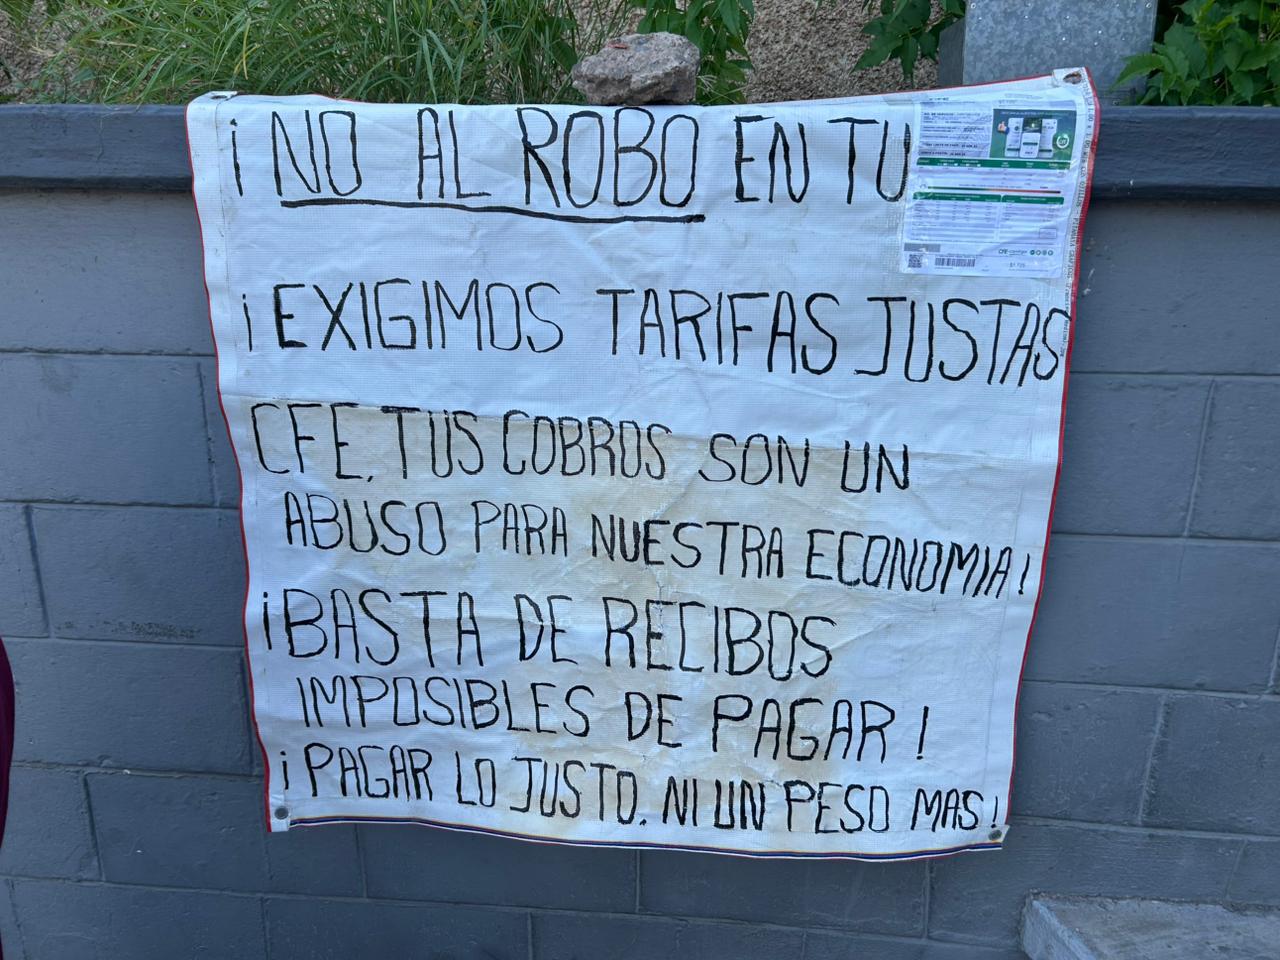 ¡NO AL ROBO EN TU
¡EXIGIMOS TARIFAS JUSTAS
CFE, TUS COBROS SON UN
ABUSO PARA NUESTRA ECONOMIA!
¡BASTA DE RECIBOS
IMPOSIBLES DE PAGAR!
¡PAGAR LO JUSTO. NI UN PESO MAS!